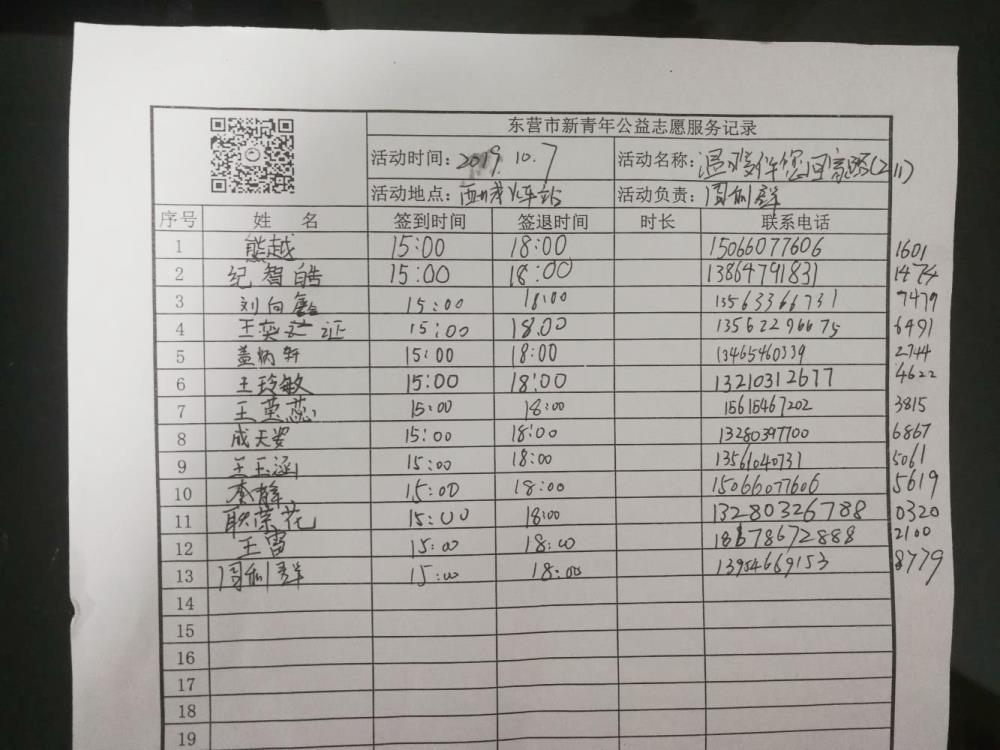 东营市新青年公益志愿服务记录
活动时间：2019.10.7 活动名称：温暖伴您回家路(211)
活动地点：西城火车站 活动负责：周利群
序号 姓 名 签到时间 签退时间 时长 联系电话
1 熊越 15:00 18:00 15066077606 1601
2 纪智皓 15:00 18:00 13864791831 1474
3 刘向鑫 15:00 18:00 13563366731 7479
4 王奕证 15:00 18:00 13562296675 6491
5 盖炳轩 15:00 18:00 13465460339 2744
6 王玲敏 15:00 18:00 13210312677 4622
7 王英蕊 15:00 18:00 15615467202 3815
8 成天姿 15:00 18:00 13280397700 6867
9 王玉涵 15:00 18:00 13561040731 5061
10 李静 15:00 18:00 15066077606 5619
11 耿荣花 15:00 18:00 13280326788 0320
12 王雷 15:00 18:00 18678672888 2100
13 周利群 15:00 18:00 13954669153 8779
14
15
16
17
18
19